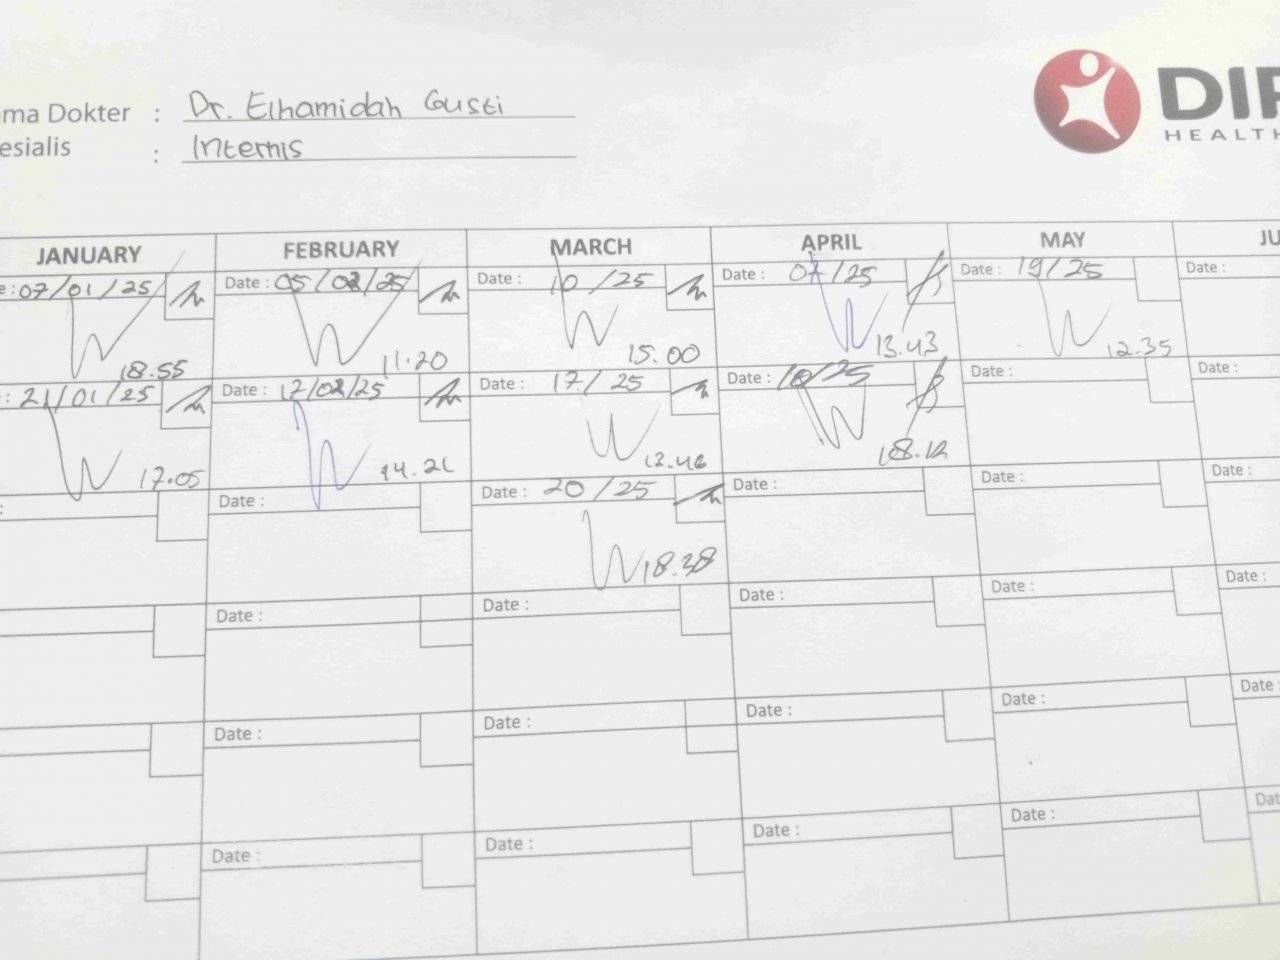 ma Dokter : Dr. Elhamidah Gusti
esialis : Internis
DIP
HEALTH
JANUARY FEBRUARY MARCH APRIL MAY JU
e : 07/01/25 Date : 05/02/25 Date : 10/25 Date : 07/25 Date : 19/25 Date :
18.55 11.20 15.00 13.43 12.35
: 21/01/25 Date : 17/02/25 Date : 17/25 Date : 10/25 Date : Date :
17.05 14.21 13.46 18.12
: Date : Date : 20/25 Date : Date : Date :
18.38
Date : Date : Date : Date : Date :
Date : Date : Date : Date : Date
Date : Date : Date : Date : Dat